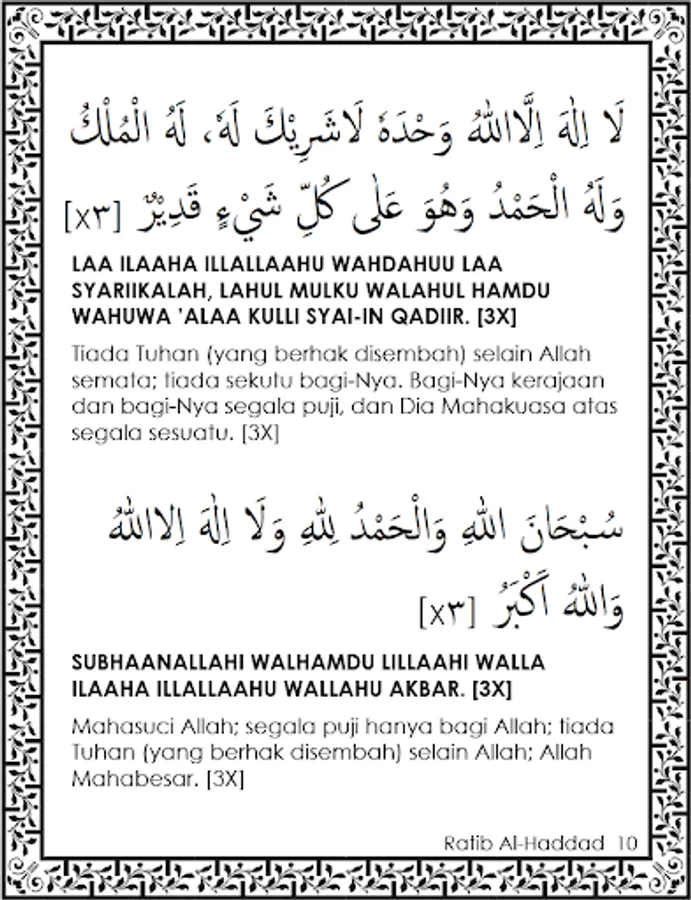 لَا اِلٰهَ اِلَّااللهُ وَحْدَهٗ لَاشَرِيْكَ لَهٗ، لَهُ الْمُلْكُ
وَلَهُ الْحَمْدُ وَهُوَ عَلٰى كُلِّ شَيْءٍ قَدِيْرٌ [x٣]
LAA ILAAHA ILLALLAAHU WAHDAHUU LAA
SYARIIKALAH, LAHUL MULKU WALAHUL HAMDU
WAHUWA 'ALAA KULLI SYAI-IN QADIIR. [3X]
Tiada Tuhan (yang berhak disembah) selain Allah
semata; tiada sekutu bagi-Nya. Bagi-Nya kerajaan
dan bagi-Nya segala puji, dan Dia Mahakuasa atas
segala sesuatu. [3X]
سُبْحَانَ اللهِ وَالْحَمْدُ لِلهِ وَلَا اِلٰهَ اِلااللهُ
وَاللهُ اَكْبَرُ [x٣]
SUBHAANALLAHI WALHAMDU LILLAAHI WALLA
ILAAHA ILLALLAAHU WALLAHU AKBAR. [3X]
Mahasuci Allah; segala puji hanya bagi Allah; tiada
Tuhan (yang berhak disembah) selain Allah; Allah
Mahabesar. [3X]
Ratib Al-Haddad 10